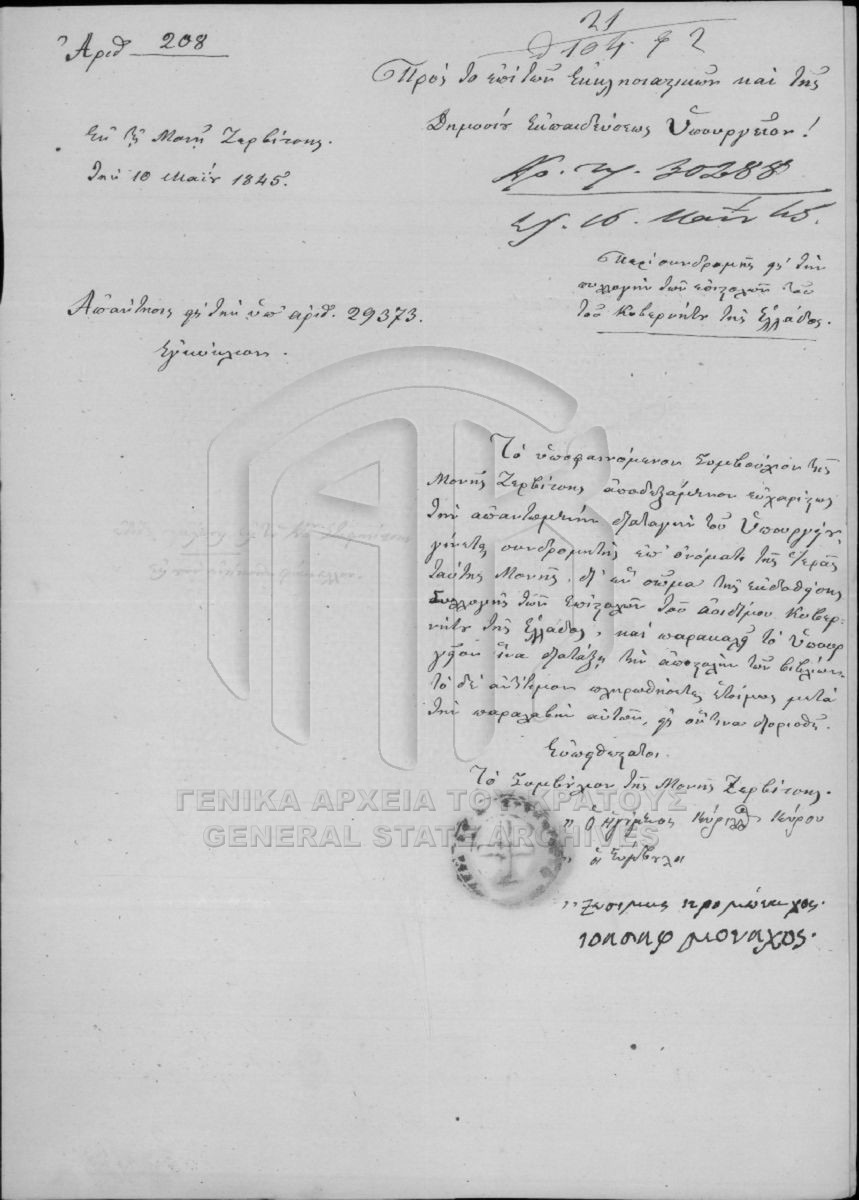 Ἀριθ 208
21
104 φ 2
Πρὸς τὸ ἐπὶ τῶν Ἐκκλησιαστικῶν καὶ τῆς
Δημοσίου Ἐκπαιδεύσεως Ὑπουργεῖον!
Ἐκ τῆς Μονῆς Ζερβίτσης.
τὴν 10 Μαΐου 1845.
30288
16. Μαΐου 45.
Περὶ συνδρομῆς εἰς τὴν
συλλογὴν τῶν ἐπιστολῶν τοῦ
τοῦ Κυβερνήτου τῆς Ἑλλάδος.
Ἀπάντησις εἰς τὴν ὑπ' ἀριθ. 29373.
Ἐγκύκλιον.
Τὸ ὑποφαινόμενον Συμβούλιον τῆς
Μονῆς Ζερβίτσης ἀποδεξάμενον εὐχαρίστως
τὴν διαταγὴν τοῦ Ὑπουργείου
γίνεται συνδρομητὴς ἐπ' ὀνόματι τῆς Ἱερᾶς
ταύτης Μονῆς, δι' ἓν σῶμα τῆς ἐκδοθείσης
Συλλογῆς τῶν Ἐπιστολῶν τοῦ ἀοιδίμου Κυβερ-
νήτου τῆς Ἑλλάδος, καὶ παρακαλεῖ τὸ Ὑπουρ
γεῖον ἵνα διατάξῃ τὴν ἀποστολὴν τῶν βιβλίων
τὸ δὲ ἀντίτιμον ἑτοίμως μετὰ
τὴν παραλαβὴν αὐτῶν, εἰς οὕτινα διορισθῇ.
Εὐπειθέστατοι.
Τὸ Συμβούλιον τῆς Μονῆς Ζερβίτσης.
Ὁ Ἡγούμενος Κύριλλος Κύρου
οἱ Σύμβουλοι
Ζωσιμας ιερομόναχος.
ιοασαφ μοναχος.
ΓΕΝΙΚΑ ΑΡΧΕΙΑ ΤΟΥ ΚΡΑΤΟΥΣ
GENERAL STATE ARCHIVES